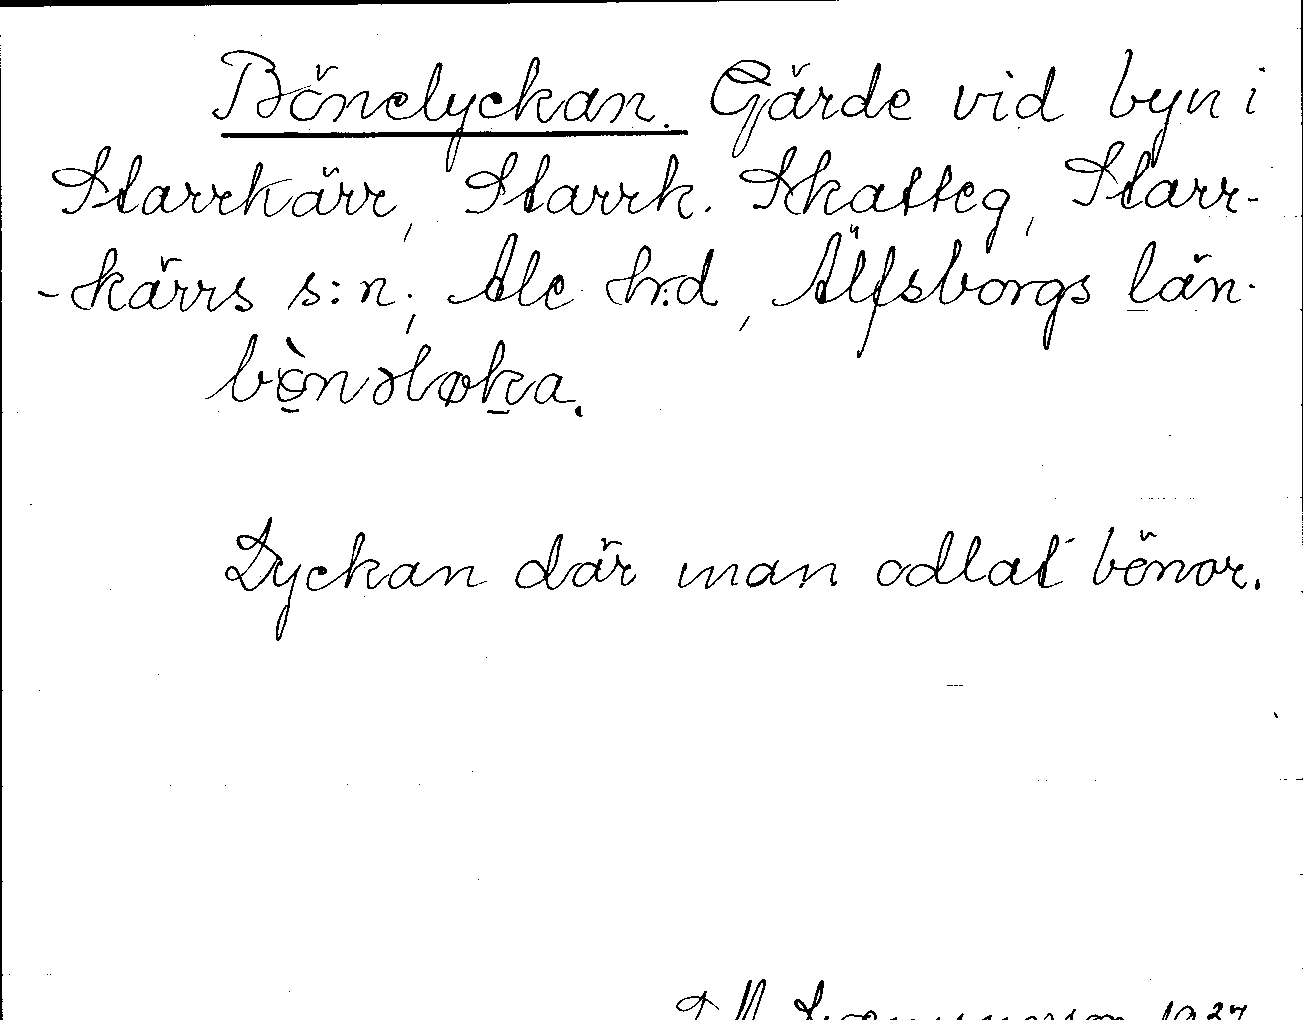 Bönelyckan. Gärde vid byn i
Starrkärr, Starrk. Skatteg, Starr-
-kärrs s:n, Ale hrd, Älfsborgs län.
bènəløka.
Lyckan där man odlat bönor.
1927